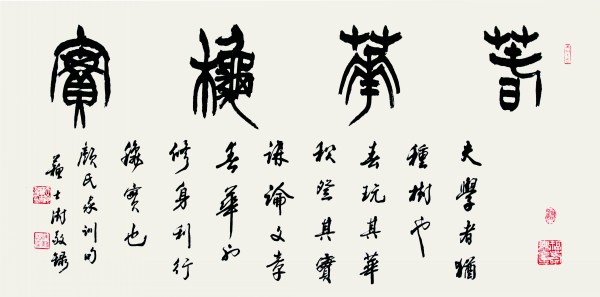 春華龝實
夫學者猶
種樹也
春玩其華
秋登其實
講論文章
春華也
修身利行
秋實也
顏氏家訓句
蘇士澍敬錄